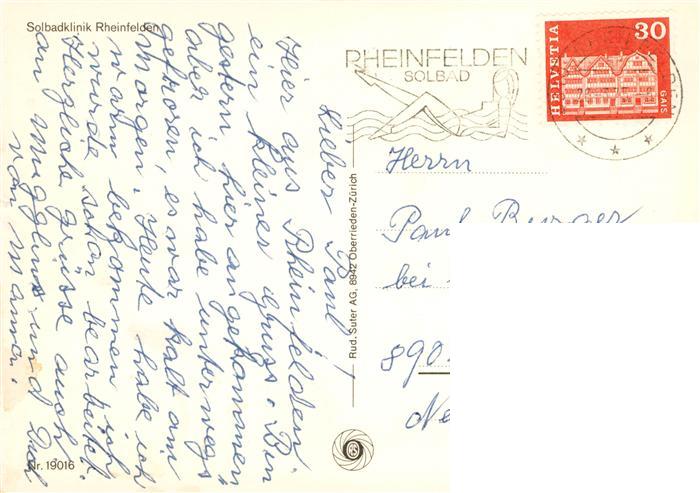 Solbadklinik Rheinfelden
RHEINFELDEN
SOLBAD
HELVETIA
30
GAIS
Lieber Paul,
Hier aus Rheinfelden
ein kleiner Gruss. Bin
gestern hier angekommen
aber ich habe unterwegs
gefroren, es war kalt am
Morgen. Heute habe ich
warm bekommen ich
wurde schon bearbeitet.
Herzliche Grüsse auch
an und Dad
von Mama.
Rud. Suter AG, 8942 Oberrieden-Zürich
Herrn
Paul
bei
890
Ne
Nr. 19016